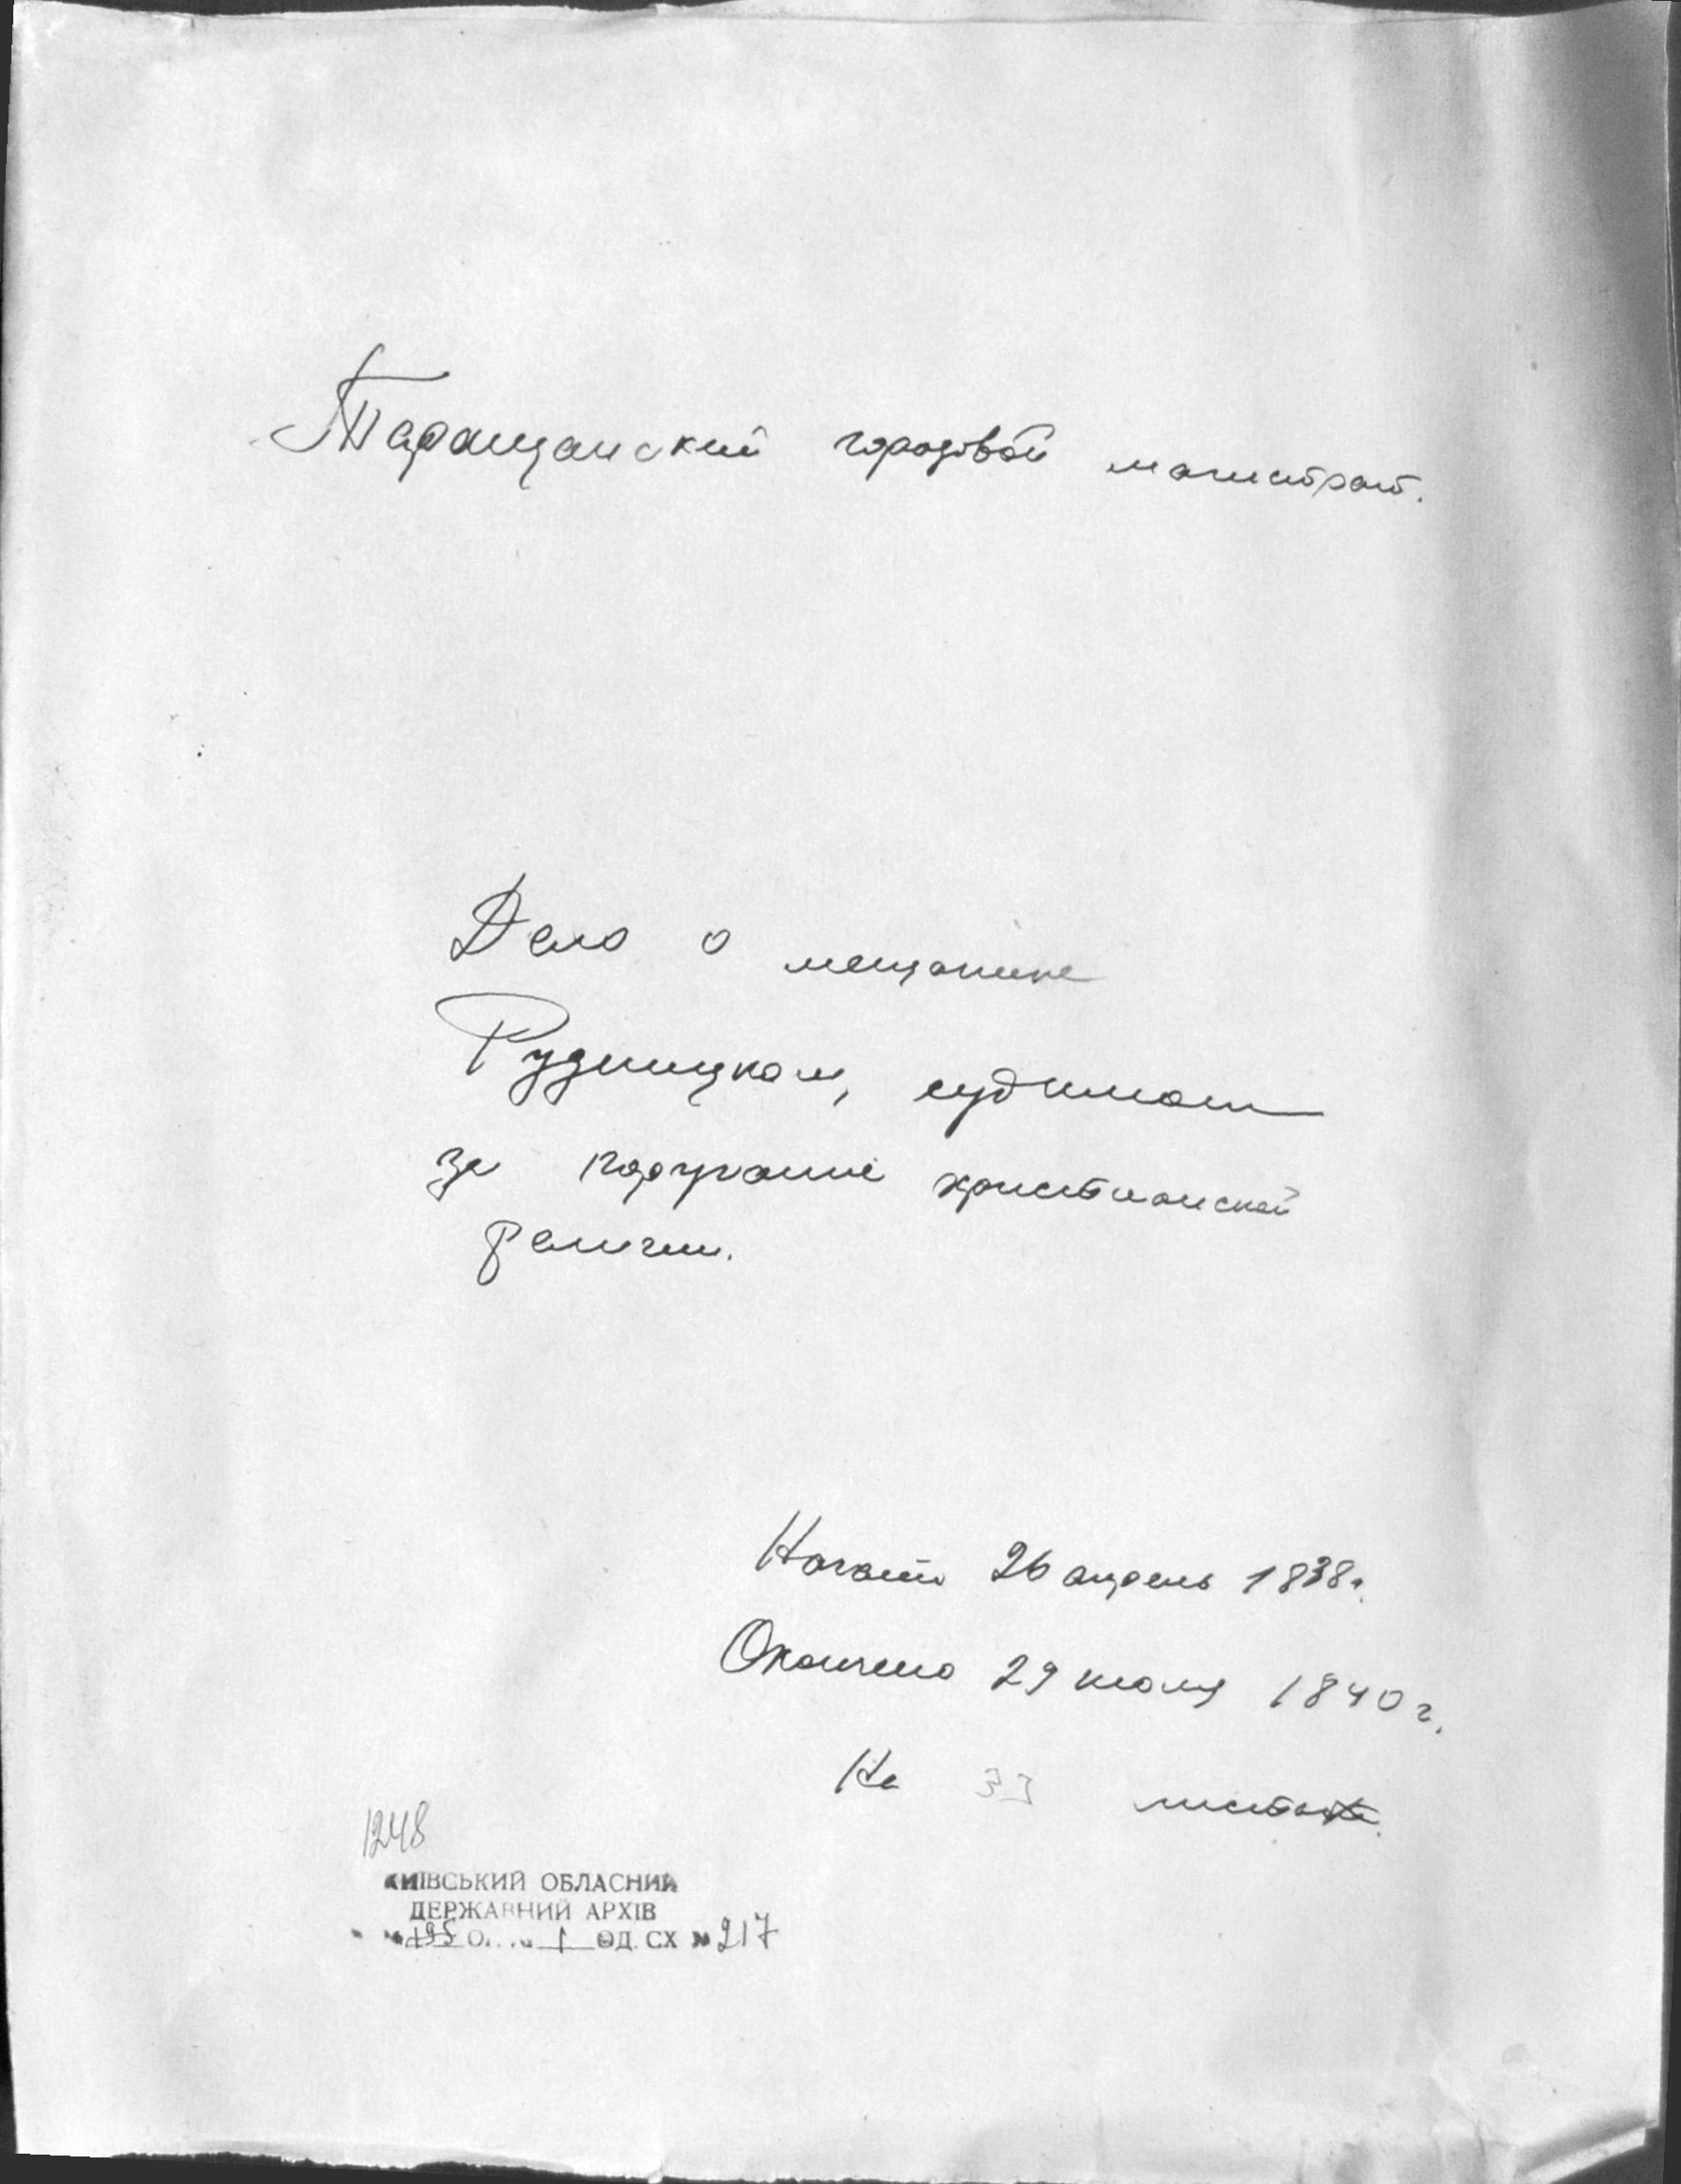 Таращанский городовой магистрат.
Дело о мещанине
Рудницком, судимом
за поругание христианской
религии.
Начато 26 апреля 1838 г.
Окончено 29 июля 1840 г.
На 33 листах.
1248
КИЇВСЬКИЙ ОБЛАСНИЙ
ДЕРЖАВНИЙ АРХІВ
№ 195 О. № 1 ОД. СХ № 217